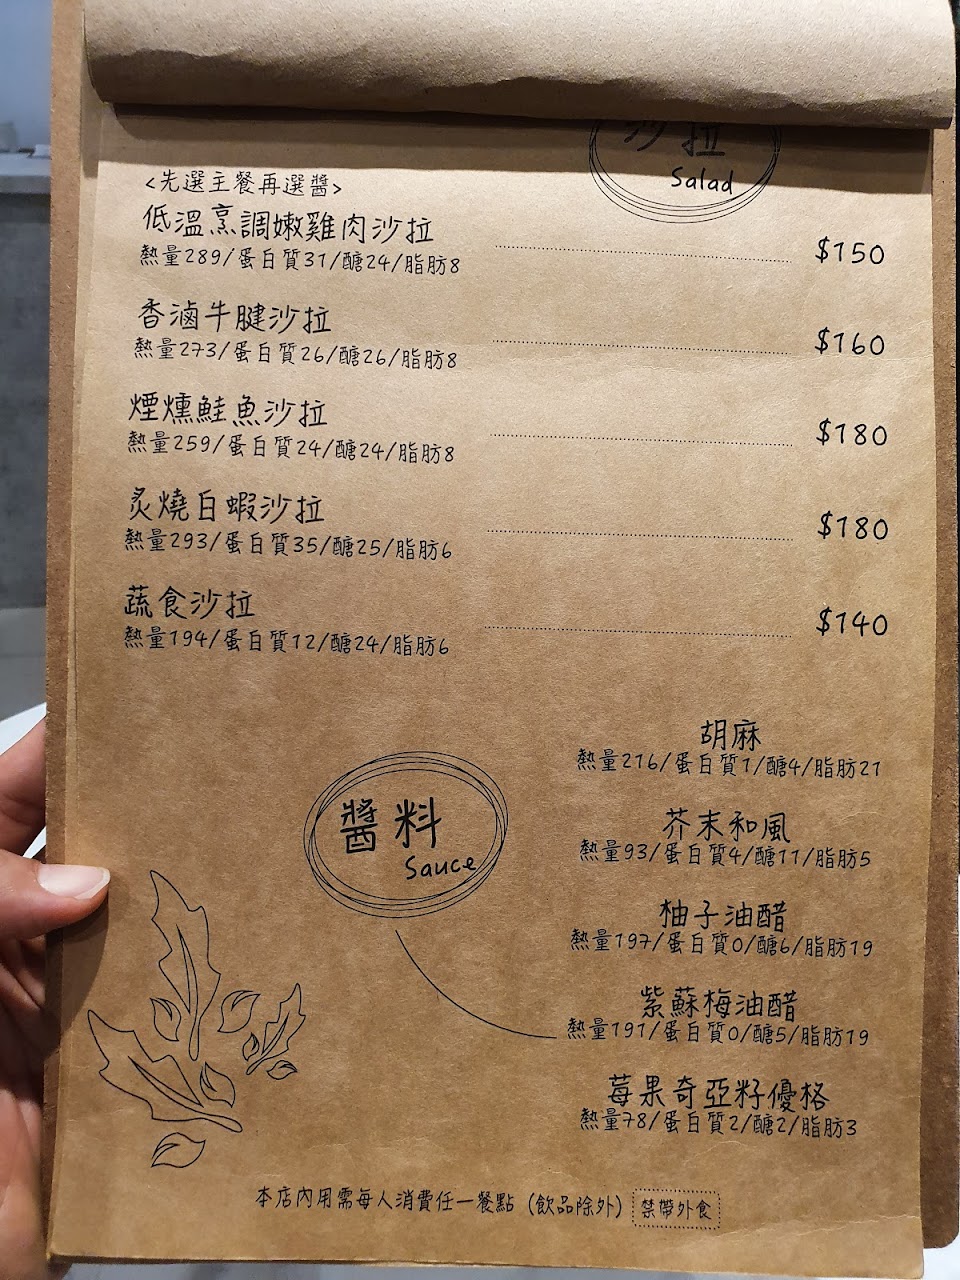 沙拉
Salad
<先選主餐再選醬>
低溫烹調嫩雞肉沙拉
$150
熱量289/蛋白質31/醣24/脂肪8
香滷牛腱沙拉
$160
熱量273/蛋白質26/醣26/脂肪8
煙燻鮭魚沙拉
$180
熱量259/蛋白質24/醣24/脂肪8
炙燒白蝦沙拉
$180
熱量293/蛋白質35/醣25/脂肪6
蔬食沙拉
$140
熱量194/蛋白質12/醣24/脂肪6
醬料
Sauce
胡麻
熱量216/蛋白質1/醣4/脂肪21
芥末和風
熱量93/蛋白質4/醣11/脂肪5
柚子油醋
熱量197/蛋白質0/醣6/脂肪19
紫蘇梅油醋
熱量191/蛋白質0/醣5/脂肪19
莓果奇亞籽優格
熱量78/蛋白質2/醣2/脂肪3
本店內用需每人消費任一餐點（飲品除外） 禁帶外食